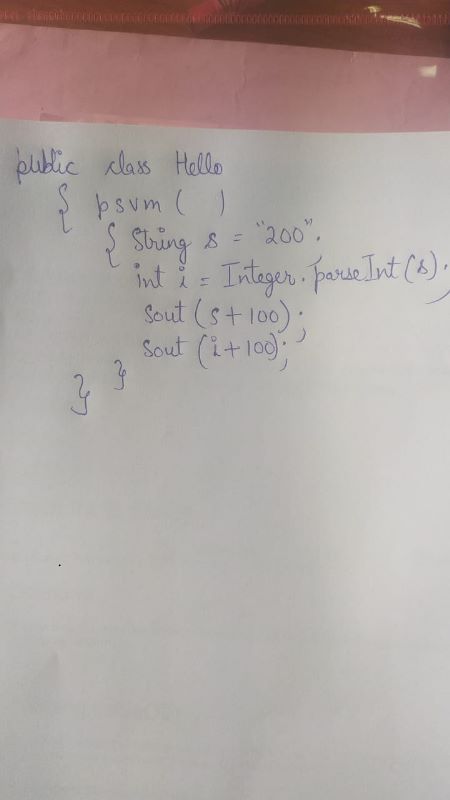 public class Hello
{ psvm ( )
{ String s = "200".
int i = Integer.parseInt(s);
sout (s+100);
sout (i+100);
}
}